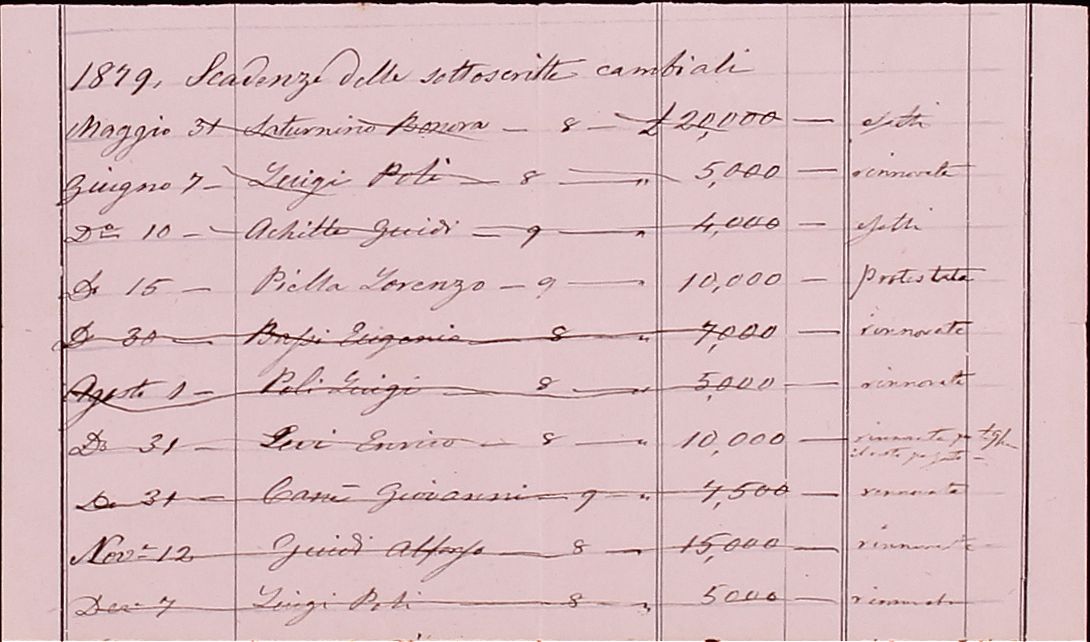 1879, Scadenze delle sottoscritte cambiali
Maggio 31 Saturnino Bonora — 8 — £ 20,000 —
Giugno 7 — Luigi Poli — 8 — " 5,000 — rinnovata
Do 10 — Achille Guidi — 9 — " 4,000 —
Do 15 — Piella Lorenzo — 9 — " 10,000 — Protestata
Do 30 — Bassi Eugenio 8 — " 7,000 — rinnovata
Agosto 1 — Poli Luigi — 8 — " 5,000 — rinnovata
Do 31 — Levi Enrico — 8 — " 10,000 — rinnovata per
il resto pagato —
Do 31 — Cané Giovanni — 9 — " 7,500 — rinnovata
Nove 12 Guidi Alfonso — 8 — 15,000 — rinnovata
Dece 7 Luigi Poli — 8 — " 5000 — rinnovata